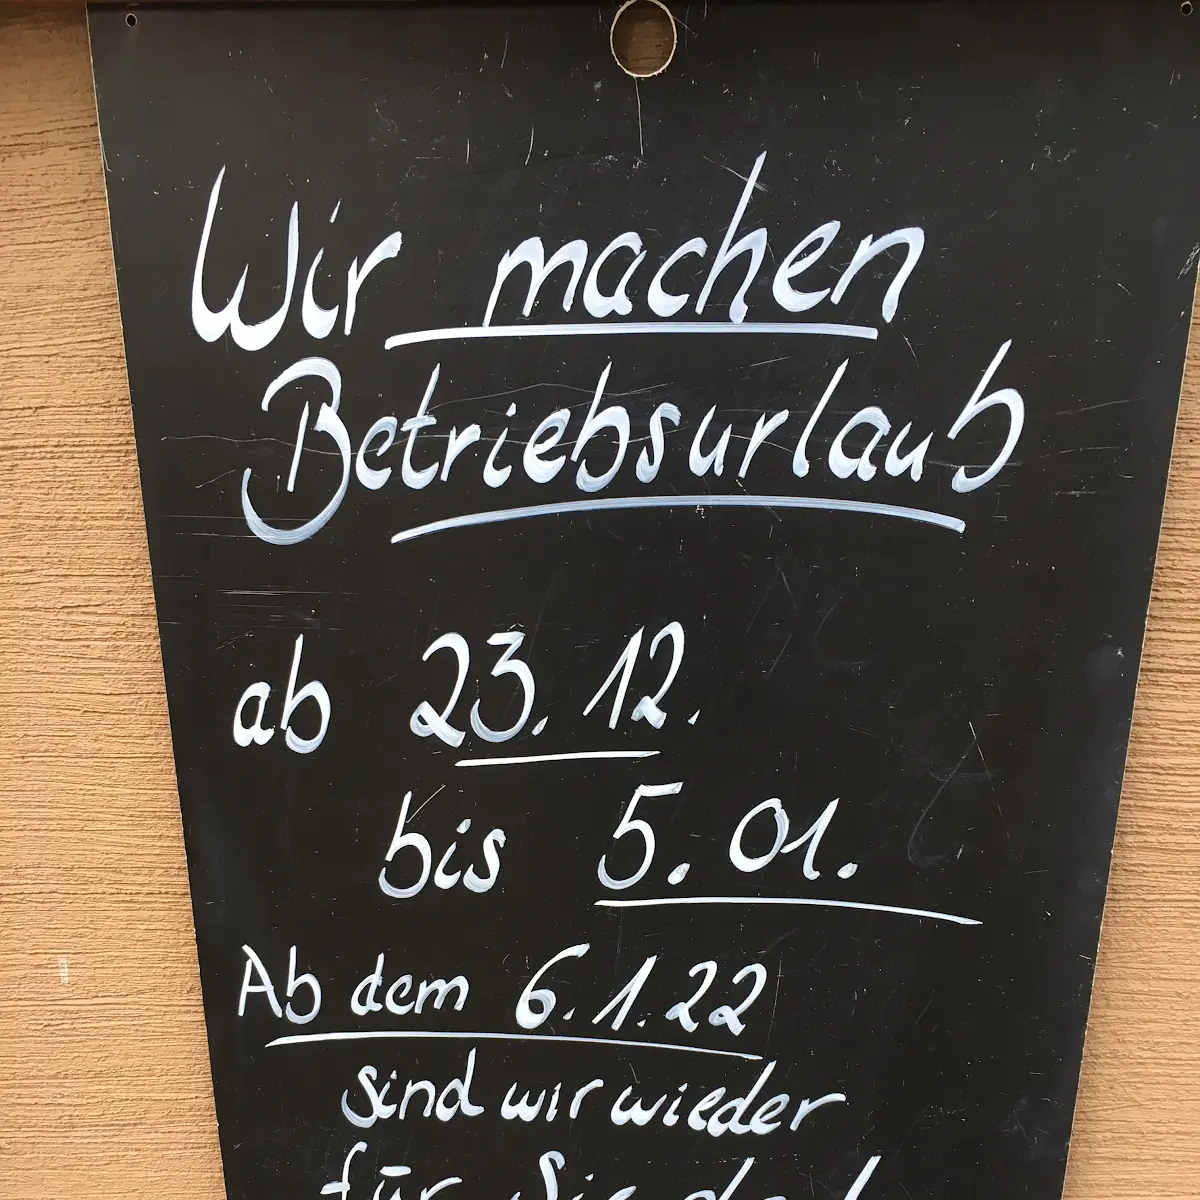 Wir machen
Betriebsurlaub
ab 23.12.
bis 5.01.
Ab dem 6.1.22
sind wir wieder
für Sie da!